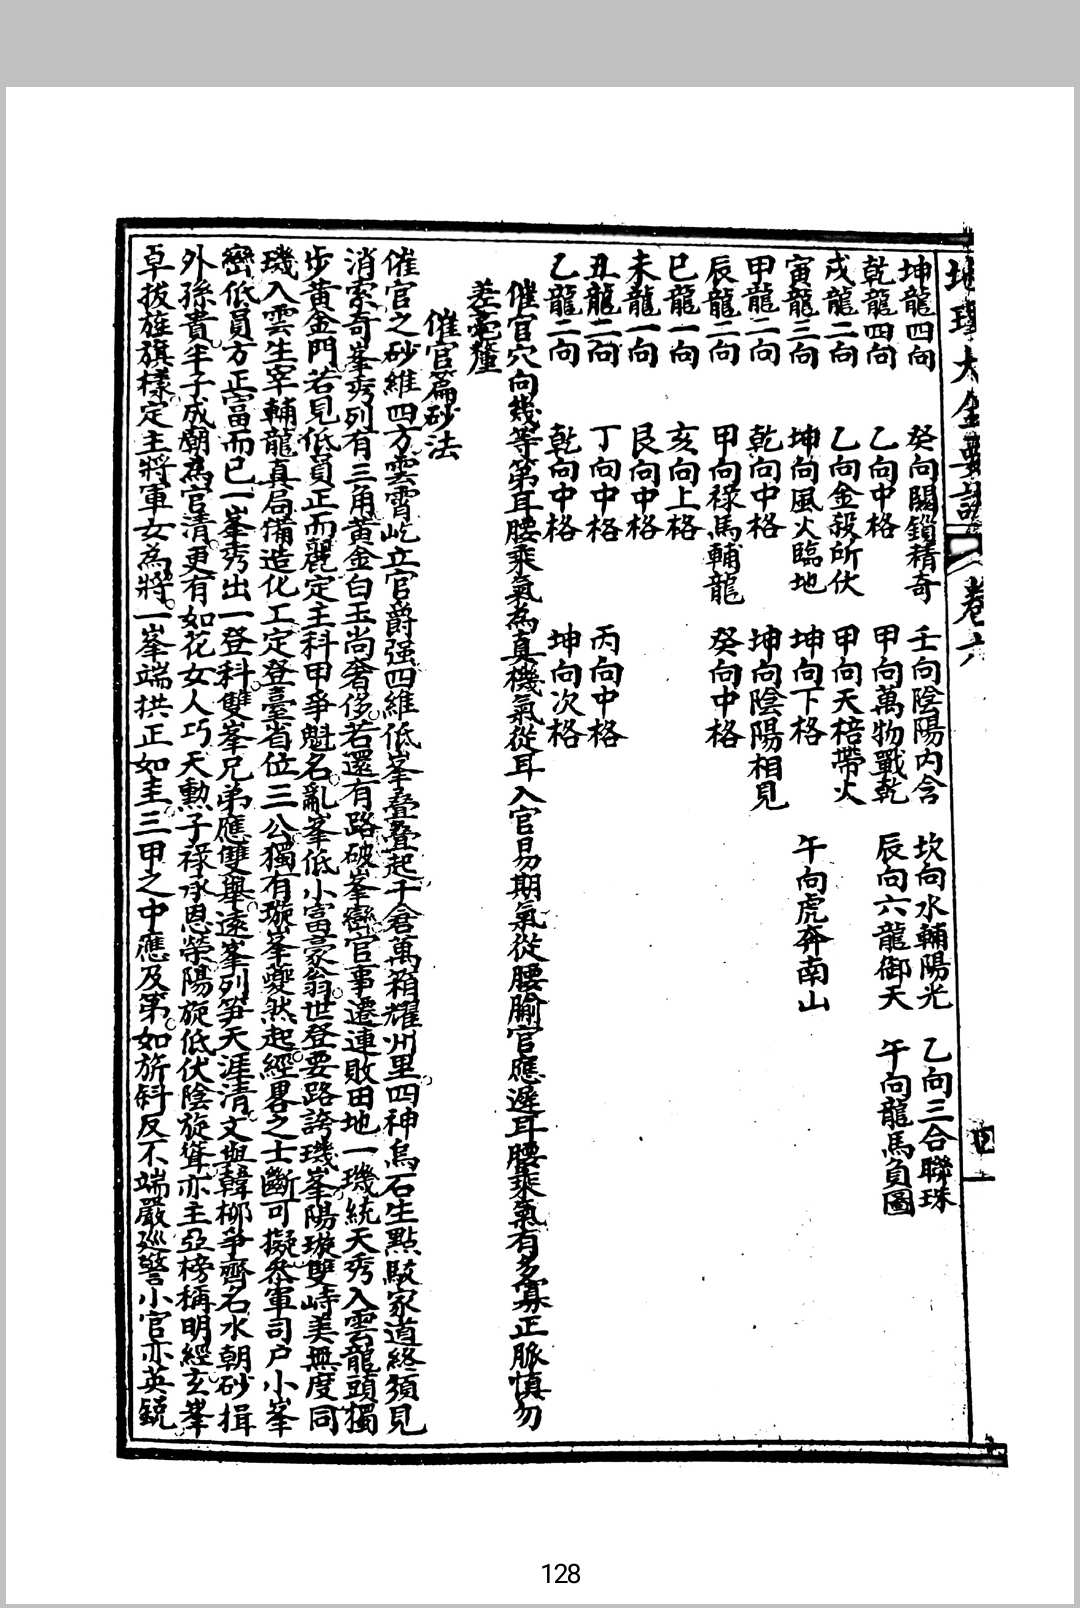 地理大全要訣 卷六
坤龍四向 癸向關鎖精奇 壬向陰陽內含 坎向水輔陽光 乙向三合聯珠
乾龍四向 乙向中格 甲向萬物戰乾 辰向六龍御天 午向龍馬負圖
戌龍二向 乙向金殺所伏 甲向天棓帶火
寅龍三向 坤向風火臨地 坤向下格 午向虎奔南山
甲龍二向 乾向中格 坤向陰陽相見
辰龍二向 甲向祿馬輔龍 癸向中格
巳龍一向 亥向上格
未龍一向 艮向中格
丑龍二向 丁向中格 丙向中格
乙龍二向 乾向中格 坤向次格
催官穴向幾等第耳腰乘氣為真機氣從耳入官易期氣從腰腧官應遲耳腰乘氣有多寡正脈慎勿
差毫釐
催官篇砂法
催官之砂維四方雲霄屹立官爵强四維低峯疊疊起千倉萬箱耀州里四神烏石生點駁家道終須見
消索奇峯秀列有三角黃金白玉尚奢侈若還有路破峯巒官事遷連敗田地一璣統天秀入雲龍頭獨
步黃金門若見低員正而麗定主科甲爭魁名亂峯低小富豪翁世登要路誇璣峯陽璇雙峙美無度同
璣入雲生宰輔龍真局備造化工定登臺省位三公獨有璇峯夔然起經畧之士斷可擬叅軍司户小峯
巒低員方正富而已一峯秀出一登科雙峯兄弟應雙舉遠峯列笋天涯清文與韓柳爭齊名水朝砂揖
外孫貴半子成廟為官清更有如花女人巧天勲子祿承恩榮陽旋低伏陰旋聳亦主亞榜稱明經玄峯
卓拔旌旗樣定主將軍女為將一峯端拱正如圭三甲之中應及第如旂斜反不端嚴巡警小官亦英銳
128